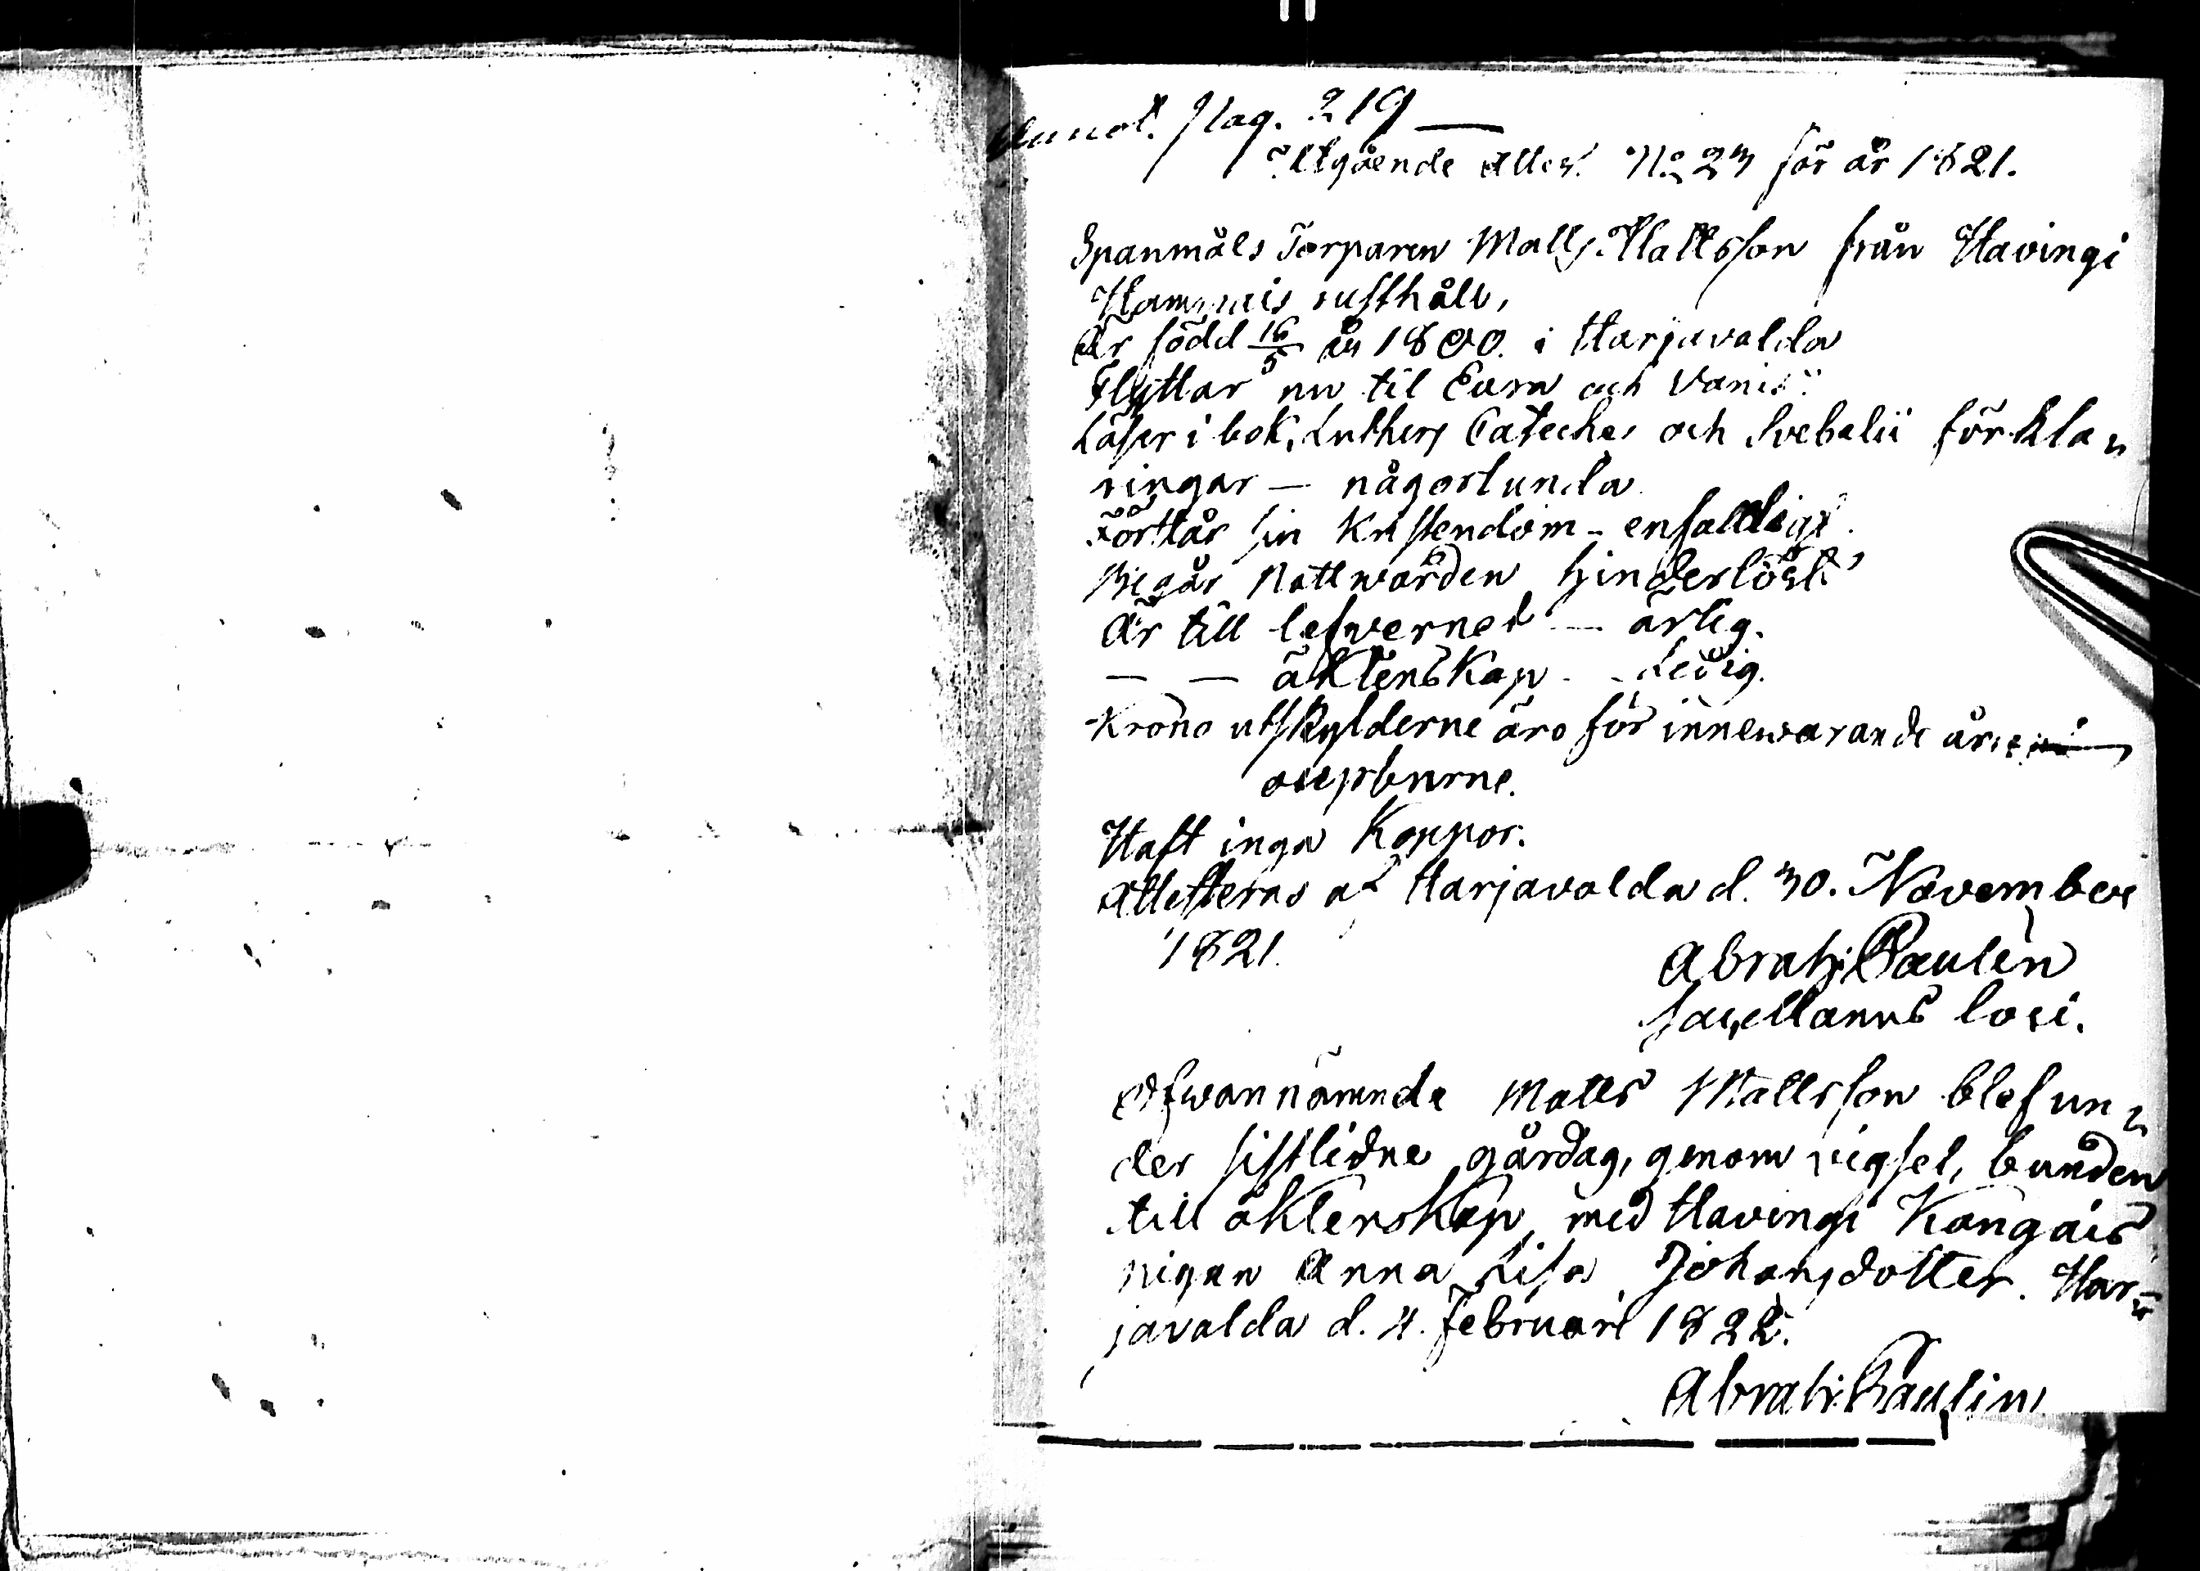 Annot. Pag. 219
Utgående Attest. No 23 för år 1821.
Spanmåls Torparen Matts Mattsson från Havingi
Hammais rusthåll,
Är född 16/5 år 1800. i Harjavalda
Flyttar nu til Eura och
Läser i bok, Luthers Cateches och Svebelii förkla„
ringar — någorlunda
Förstår sin Kristendom — enfaldigt.
Begår Nattwarden hinderlöst
Är till lefvernet — ärlig.
— — äktenskap — Ledig.
Krono utskylderne äro för innewarande år
oupburne.
Haft inga Koppor.
Attesteras af Harjavalda d. 30. November
1821.
Abrah: Paulin
Sacellanus loci.
Ofwannämnde Matts Mattsson blef un„
der sistlidne gårdag, genom vigsel, bunden
till äktenskap med Havingi Kangais
pigan Anna Lisa Johansdotter. Har„
javalda d. 4. Februari 1822.
Abrah: Paulin